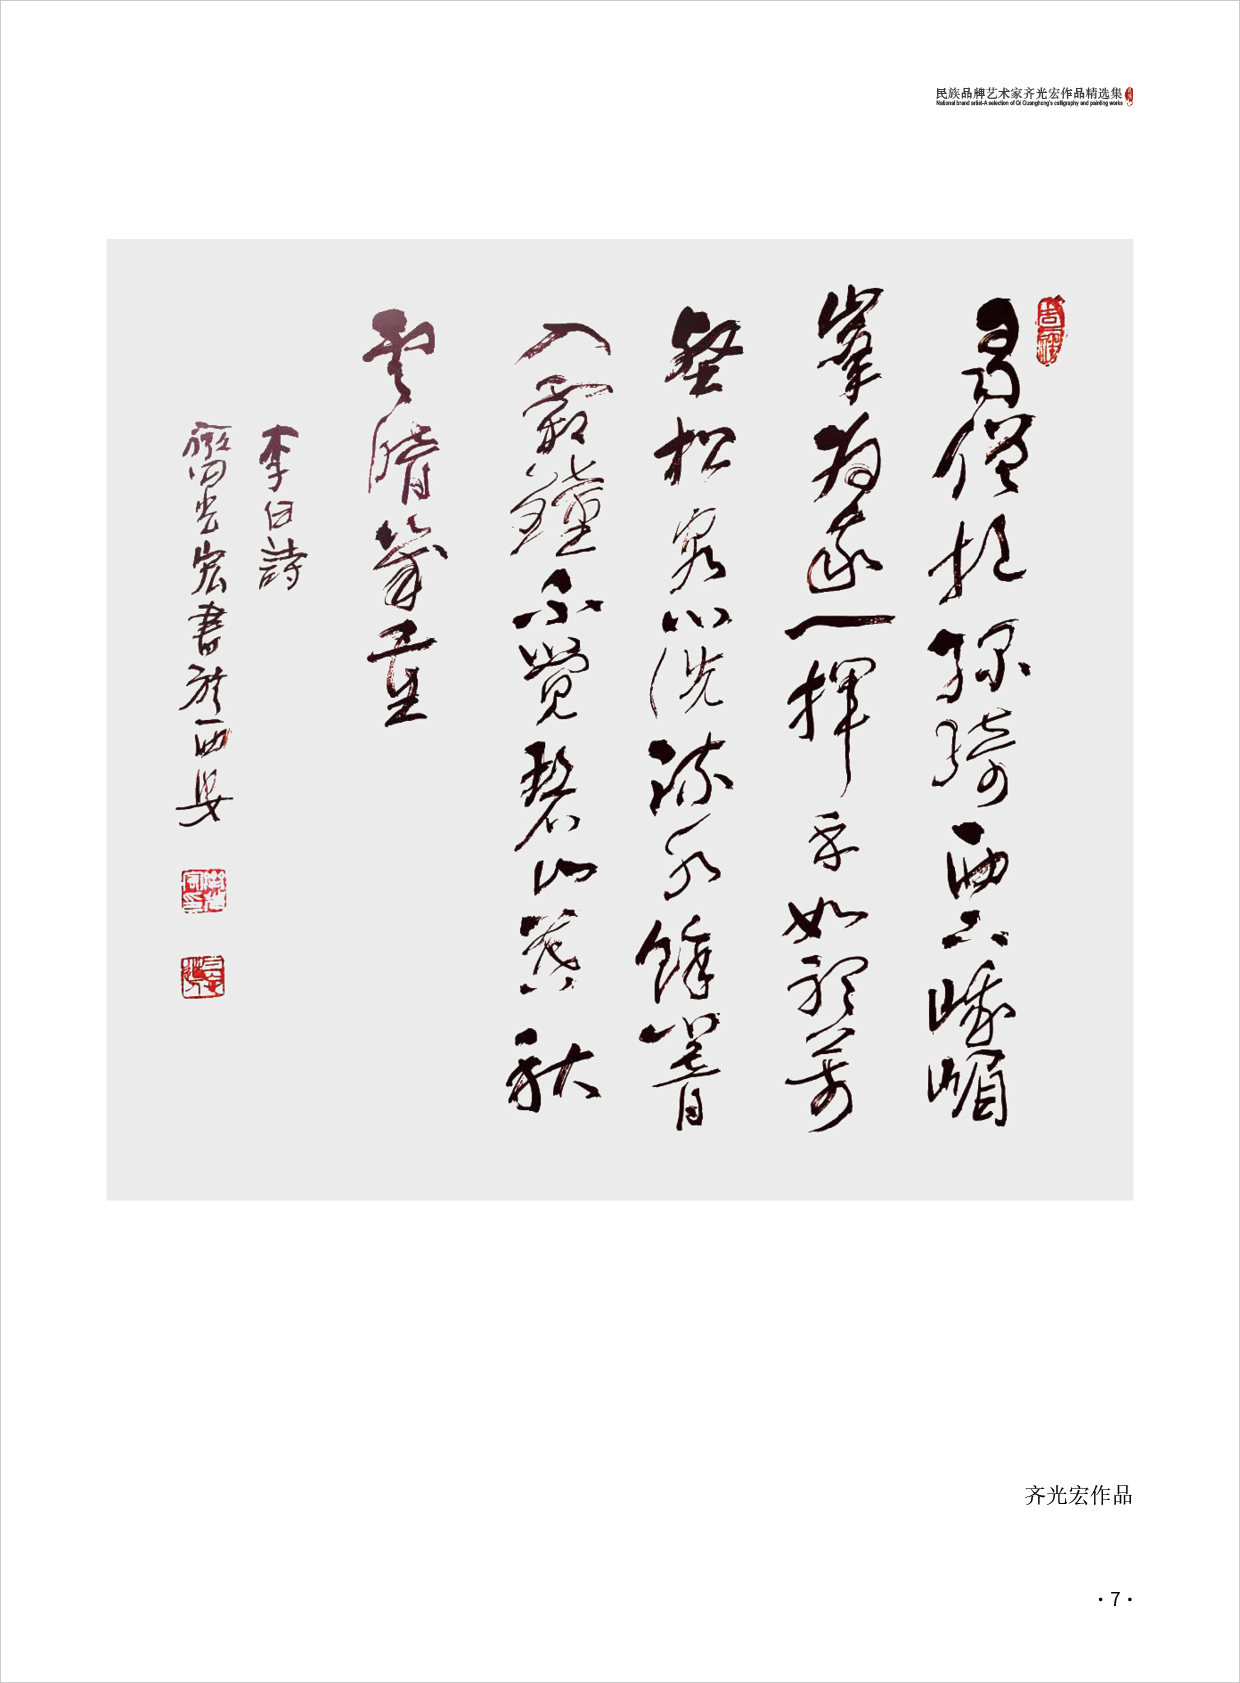 民族品牌艺术家齐光宏作品精选集
National brand artist-A selection of Qi Guanghong's calligraphy and painting works
蜀僧抱綠綺西下峨嵋
峯為我一揮手如聽萬
壑松客心洗流水餘響
入霜鐘不覺碧山暮秋
雲暗幾重
李白詩
齊光宏書於西安
齐光宏作品
·7·